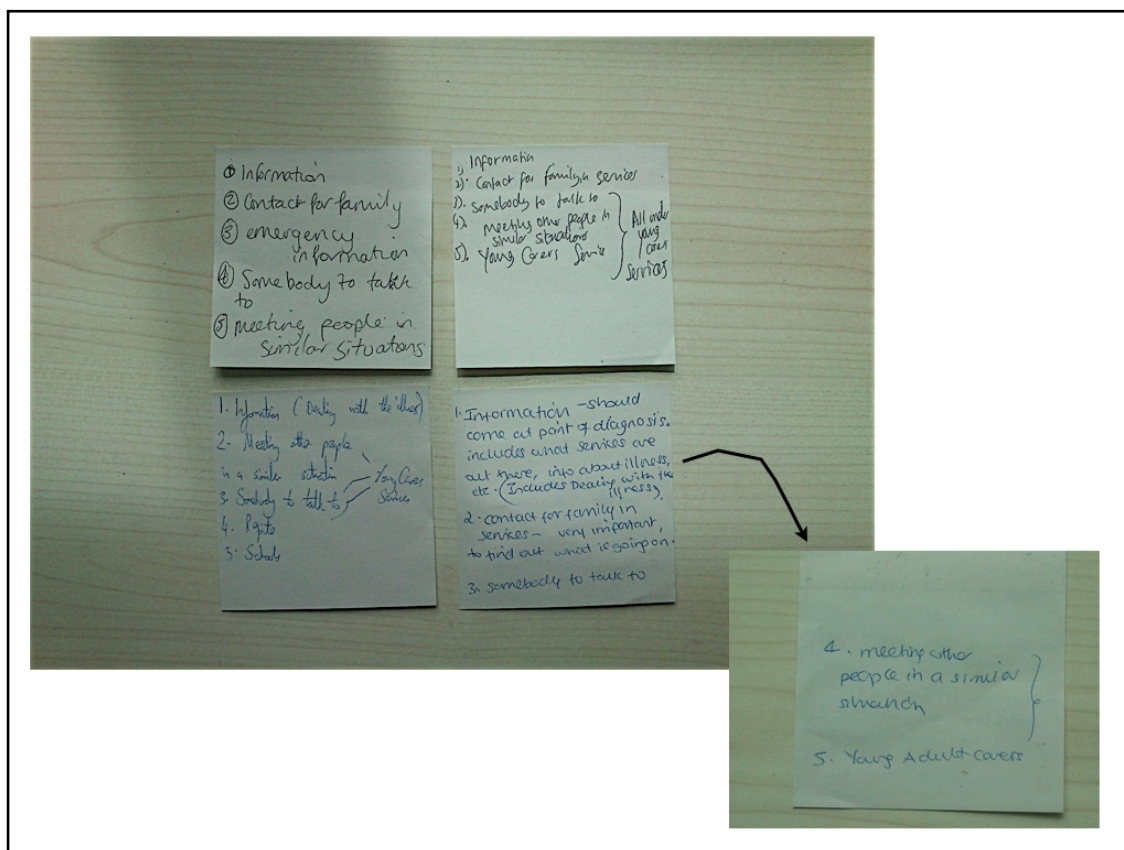 ① Information
② Contact for family
③ emergency
information
④ Somebody to talk
to
⑤ meeting people in
similar situations
1). Information
2). Contact for family in services
3). Somebody to talk to
4). meeting other people in
similar situations
5). Young Carers Service
All under
young
carers
services
1. Information (Dealing with the illness)
2. Meeting other people
in a similar situation
3. Somebody to talk to
Young Carers
Services
4. 
5. Schools
1. Information - should
come at point of diagnosis.
includes what services are
out there, info about illness,
etc. (Includes Dealing with the
illness)
2. contact for family in
services - very important,
to find out what is going on.
3. somebody to talk to
4. meeting other
people in a similar
situation
5. Young Adult Carers